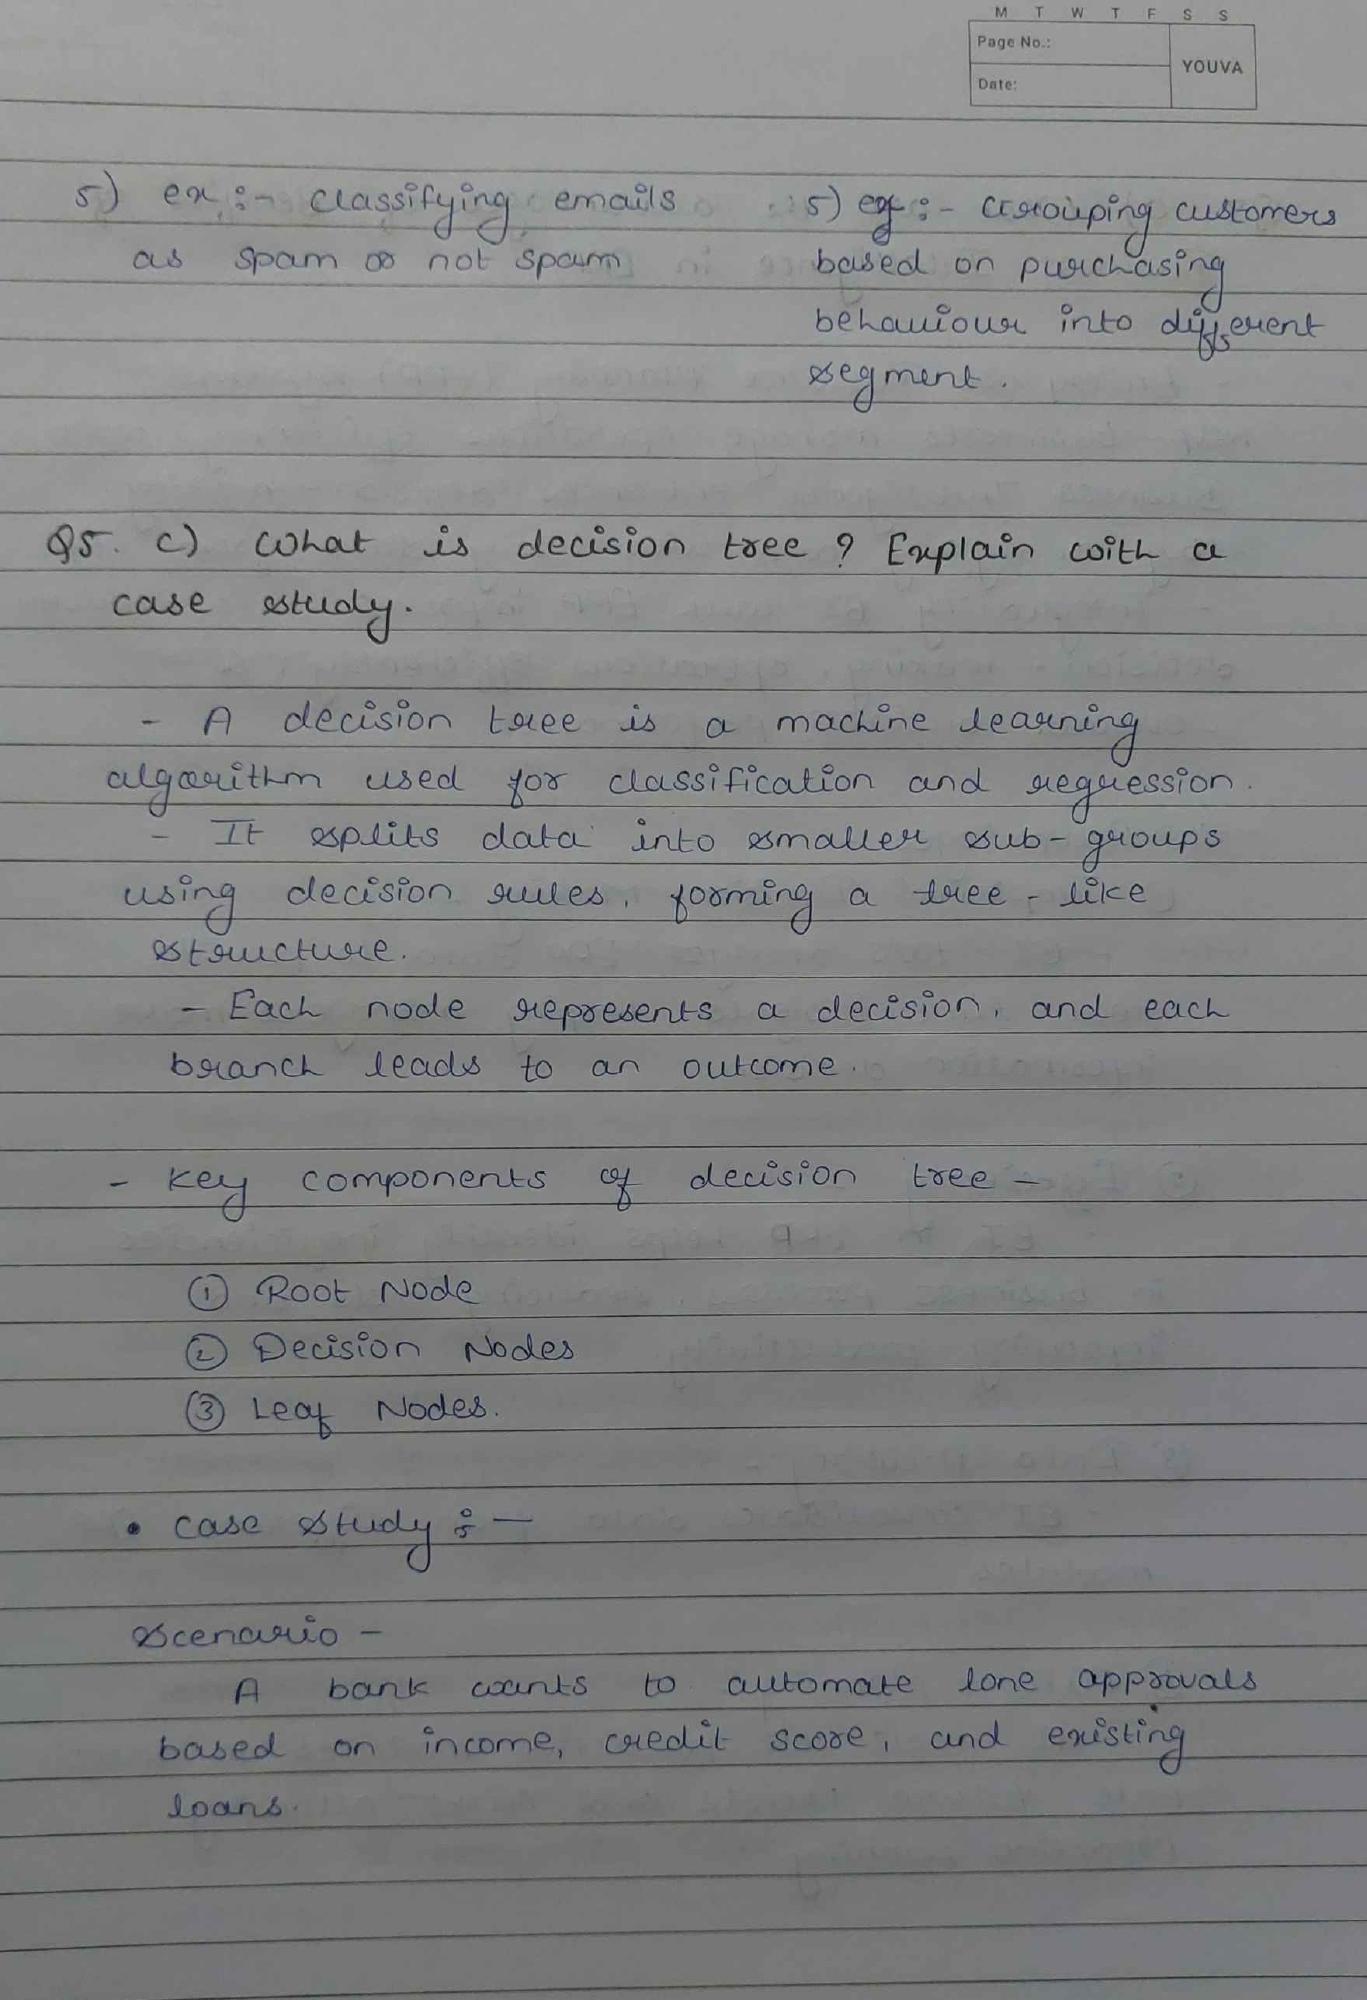 M T W T F S S
Page No.:
YOUVA
Date:
5) ex :- classifying emails
as spam or not spam
5) eg :- Grouping customers
based on purchasing
behaviour into different
segment.
Q5. c) What is decision tree ? Explain with a
case study.
- A decision tree is a machine learning
algorithm used for classification and regression.
- It splits data into smaller sub-groups
using decision rules, forming a tree-like
structure.
- Each node represents a decision, and each
branch leads to an outcome.
- Key components of decision tree -
① Root Node
② Decision Nodes
③ Leaf Nodes.
• case study :-
Scenario -
A bank wants to automate lone approvals
based on income, credit score, and existing
loans.